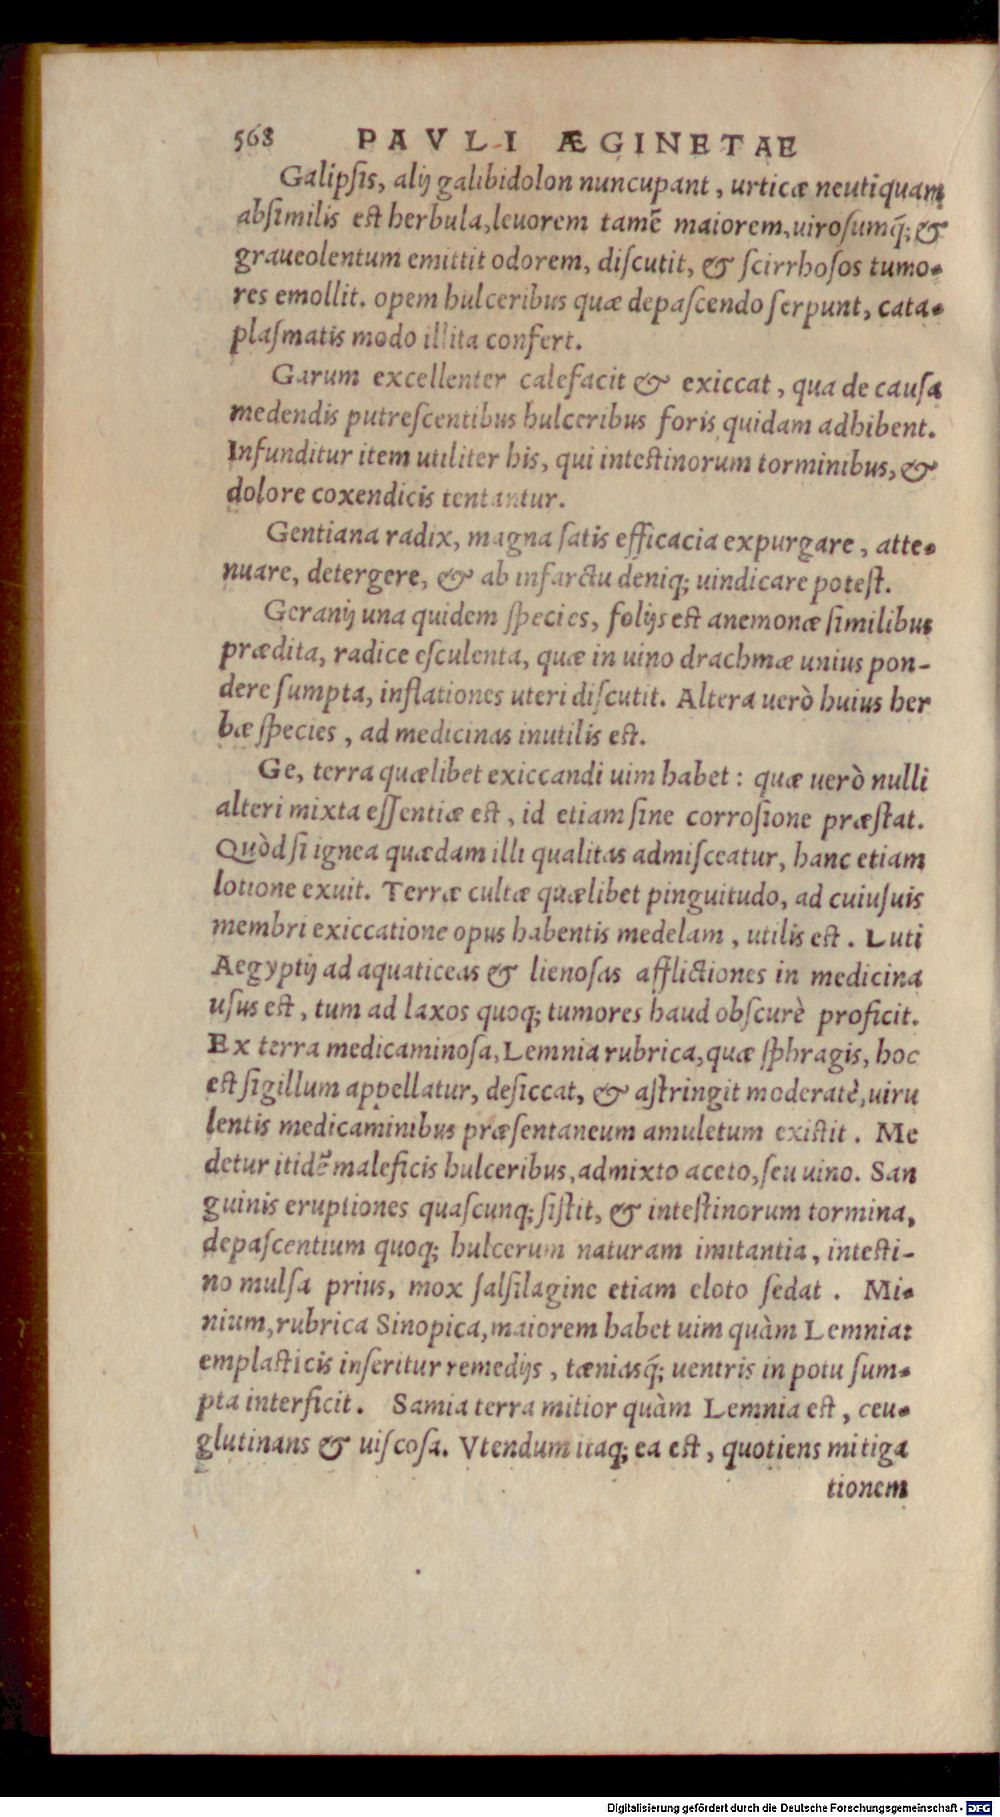 568 PAVLI ÆGINETAE
Galipſis, alij galibidolon nuncupant, urticæ neutiquam
abſimilis est herbula, leuorem tamē maiorem, uiroſumq́; &
graueolentum emittit odorem, diſcutit, & ſcirrhoſos tumo-
res emollit. opem hulceribus quæ depaſcendo ſerpunt, cata-
plaſmatis modo illita confert.
Garum excellenter calefacit & exiccat, qua de cauſa
medendis putreſcentibus hulceribus foris quidam adhibent.
Infunditur item utiliter his, qui intestinorum torminibus, &
dolore coxendicis tentantur.
Gentiana radix, magna ſatis efficacia expurgare, atte-
nuare, detergere, & ab infarctu deniq; uindicare poteſt.
Geranij una quidem ſpecies, folijs est anemonæ ſimilibus
prædita, radice eſculenta, quæ in uino drachmæ unius pon-
dere ſumpta, inflationes uteri diſcutit. Altera uerò huius her
bæ ſpecies, ad medicinas inutilis est.
Ge, terra quælibet exiccandi uim habet: quæ uerò nulli
alteri mixta eſſentiæ est, id etiam ſine corroſione præſtat.
Quòd ſi ignea quædam illi qualitas admiſceatur, hanc etiam
lotione exuit. Terræ cultæ quælibet pinguitudo, ad cuiuſuis
membri exiccatione opus habentis medelam, utilis est. Luti
Aegyptij ad aquaticeas & lienoſas afflictiones in medicina
uſus est, tum ad laxos quoq; tumores haud obſcurè proficit.
Ex terra medicaminoſa, Lemnia rubrica, quæ ſphragis, hoc
est ſigillum appellatur, deſiccat, & aſtringit moderatè, uiru
lentis medicaminibus præſentaneum amuletum existit. Me
detur itidē maleficis hulceribus, admixto aceto, ſeu uino. San
guinis eruptiones quaſcunq; ſiſtit, & inteſtinorum tormina,
depaſcentium quoq; hulcerum naturam imitantia, intesti-
no mulſa prius, mox ſalſilagine etiam eloto ſedat. Mi-
nium, rubrica Sinopica, maiorem habet uim quàm Lemnia:
emplasticis inſeritur remedijs, tæniasq́; uentris in potu ſum-
pta interficit. Samia terra mitior quàm Lemnia est, ceu-
glutinans & uiſcoſa. Vtendum itaq; ea est, quotiens mitiga
tionem
Digitalisierung gefördert durch die Deutsche Forschungsgemeinschaft - DFG